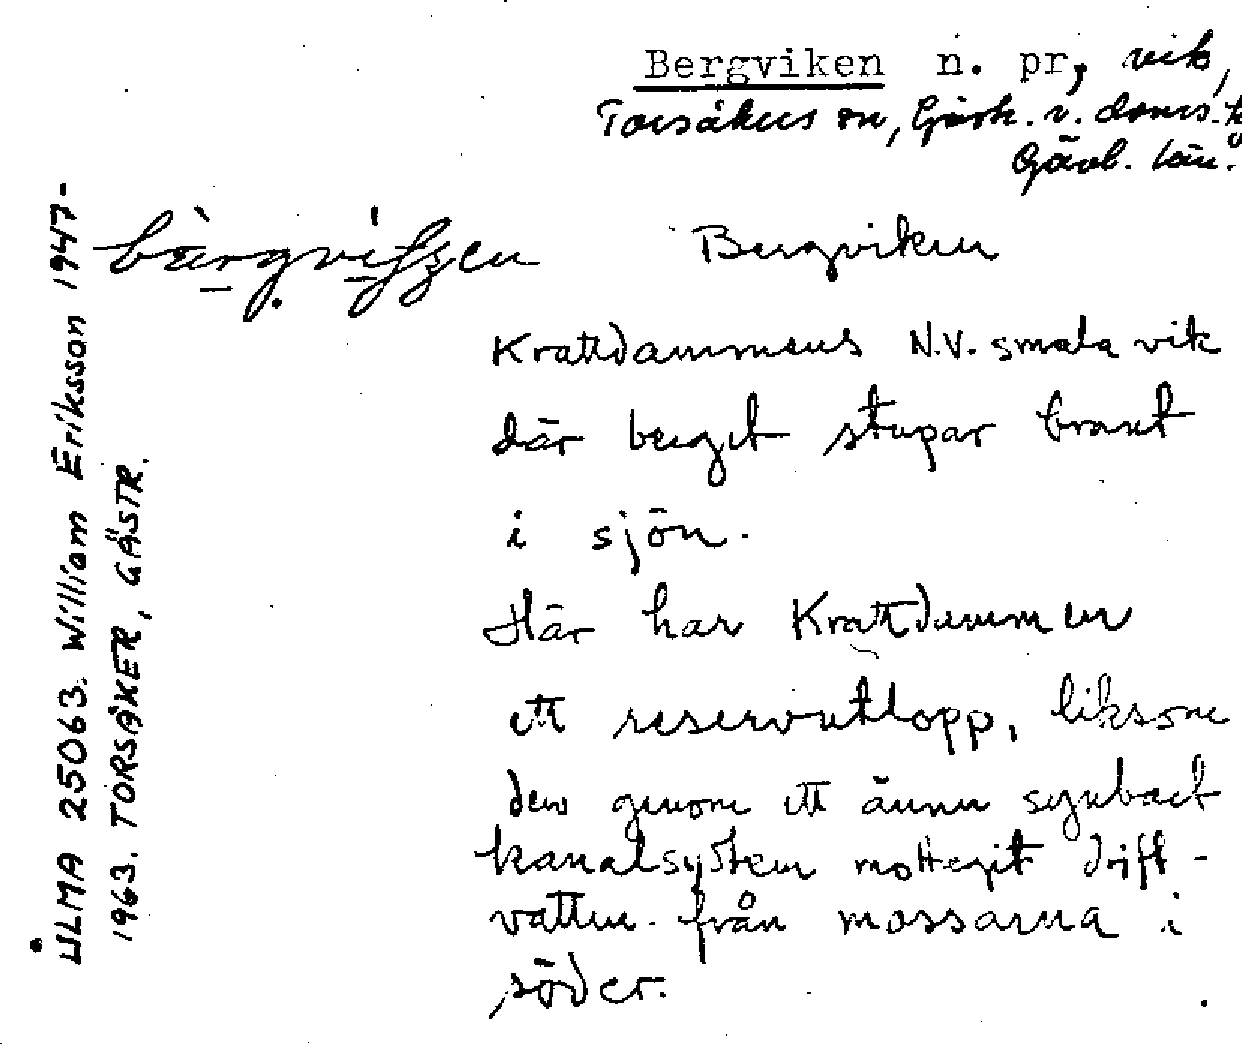 Bergviken n. pr, vik,
Torsåkers sn, Gästr. v. doms.
Gävl. län.
Bergviken
Krattdammens N.V. smala vik
där berget stupar brant
i sjön.
Här har Krattdammen
ett reservutlopp, liksom
den genom ett ännu synbart
kanalsystem mottagit drift-
vatten från mossarna i
söder.
ULMA 25063. William Eriksson 1947-
1963. TORSÅKER, GÄSTR.